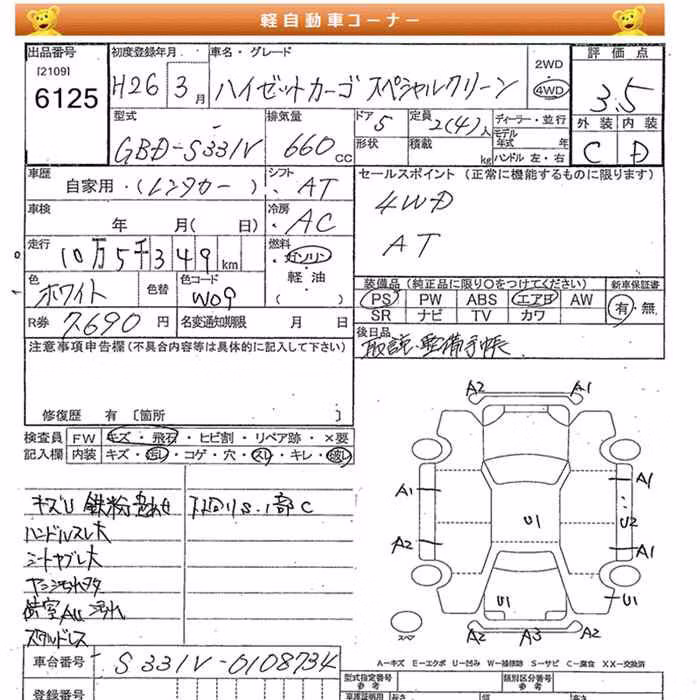 軽自動車コーナー
出品番号 初度登録年月 車名・グレード 2WD 評価点
[2109] 6125 H26 3月 ハイゼットカーゴ スペシャルクリーン 4WD 3.5
型式 排気量 ドア 定員 ディーラー・並行 外装 内装
GBD-S331V 660cc 5 2(4)人 モデル年式 年 C D
形状 積載 kg ハンドル 左・右
車歴 シフト セールスポイント (正常に機能するものに限ります)
自家用・(レンタカー)・AT 4WD
車検 冷房
年 月(日)・AC AT
走行 燃料
10万5千349km ガソリン
色 色替 色コード 軽油 装備品(純正品に限り〇をつけてください) 新車保証書
ホワイト W09 ( ) PS PW ABS エアB AW 有・無
SR ナビ TV カワ
R券 7.690円 名変通知期限 月 日 後日品
注意事項申告欄(不具合内容等は具体的に記入して下さい) 取説・整備手帳
修復歴 有 [箇所 ]
検査員 FW キズ・飛石・ヒビ割・リペア跡・×要
記入欄 内装 キズ・汚れ・コゲ・穴・スレ・キレ・破レ
キズU 鉄粉 下回りS.1部C
ハンドルスレ大
シートヤブレ大
荷室ALL汚れ
スタッドレス
A2 A1
A1 A1
U1 U2
A2 A1
U1 U1
スペア A2 A3 A2
A-キズ E-エクボ U-凹み W-補修跡 S-サビ C-腐食 XX-交換済
車台番号 S331V-0108734 型式指定番号 参考 類別区分番号 参考
登録番号